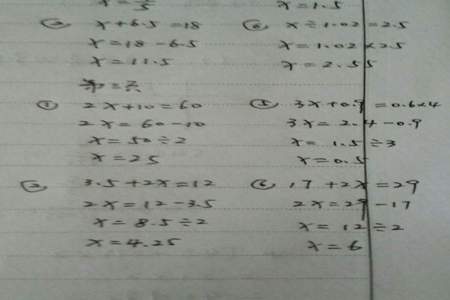 x=1.5
③ x+6.5=18
x=18-6.5
x=11.5
⑥ x÷1.02=2.5
x=1.02×2.5
x=2.55
① 2x+10=60
2x=60-10
x=50÷2
x=25
⑤ 3x+0.9=0.6×4
3x=2.4-0.9
x=1.5÷3
x=0.5
② 3.5+2x=12
2x=12-3.5
x=8.5÷2
x=4.25
⑥ 17+2x=29
2x=29-17
x=12÷2
x=6